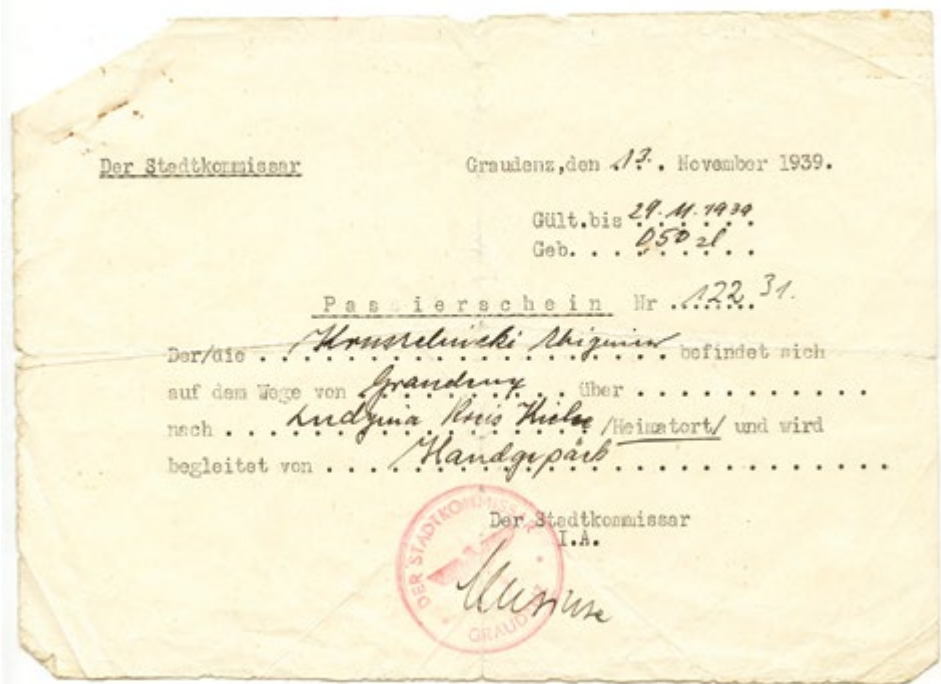 Der Stadtkommissar
Graudenz,den 17. November 1939.
Gült.bis 29.11.1939
Geb. . . 0,50 zł . . .
Passierschein Nr .122.31.
Der/die . . Kruszelnicki Zbigniew . . befindet sich
auf dem Wege von Graudenz . . über . . . . . . . . . . .
nach . . . Ludynia Kreis Kielce /Heimatort/ und wird
begleitet von . . . . Handgepäck . . . . . . . . . . . .
Der Stadtkommissar
I.A.
DER STADTKOMMISSAR
GRAUDENZ